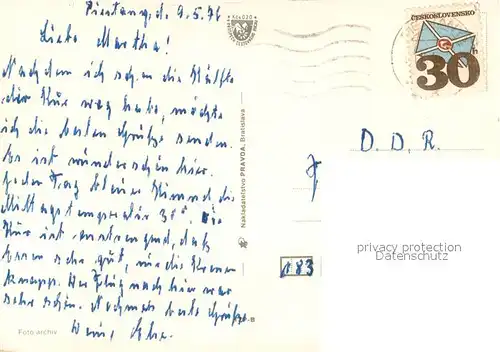 Piestany, d. 9.5.76
Liebe Martha!
Nachdem ich schon die Hälfte
der Kur weg habe, möchte
ich die besten Grüße senden.
Es ist wunderschön hier.
Jeden Tag blauer Himmel die
Mittagstemperatur 30°. Die
Kur ist anstrengend, das
Essen sehr gut, nur die Kronen
knapp. Der Flug nach hier war
sehr schön. Nochmals beste Grüße
Foto archiv
Nakladateľstvo PRAVDA, Bratislava
ČESKOSLOVENSKO
30 h
D. D. R.
privacy protection
Datenschutz
83